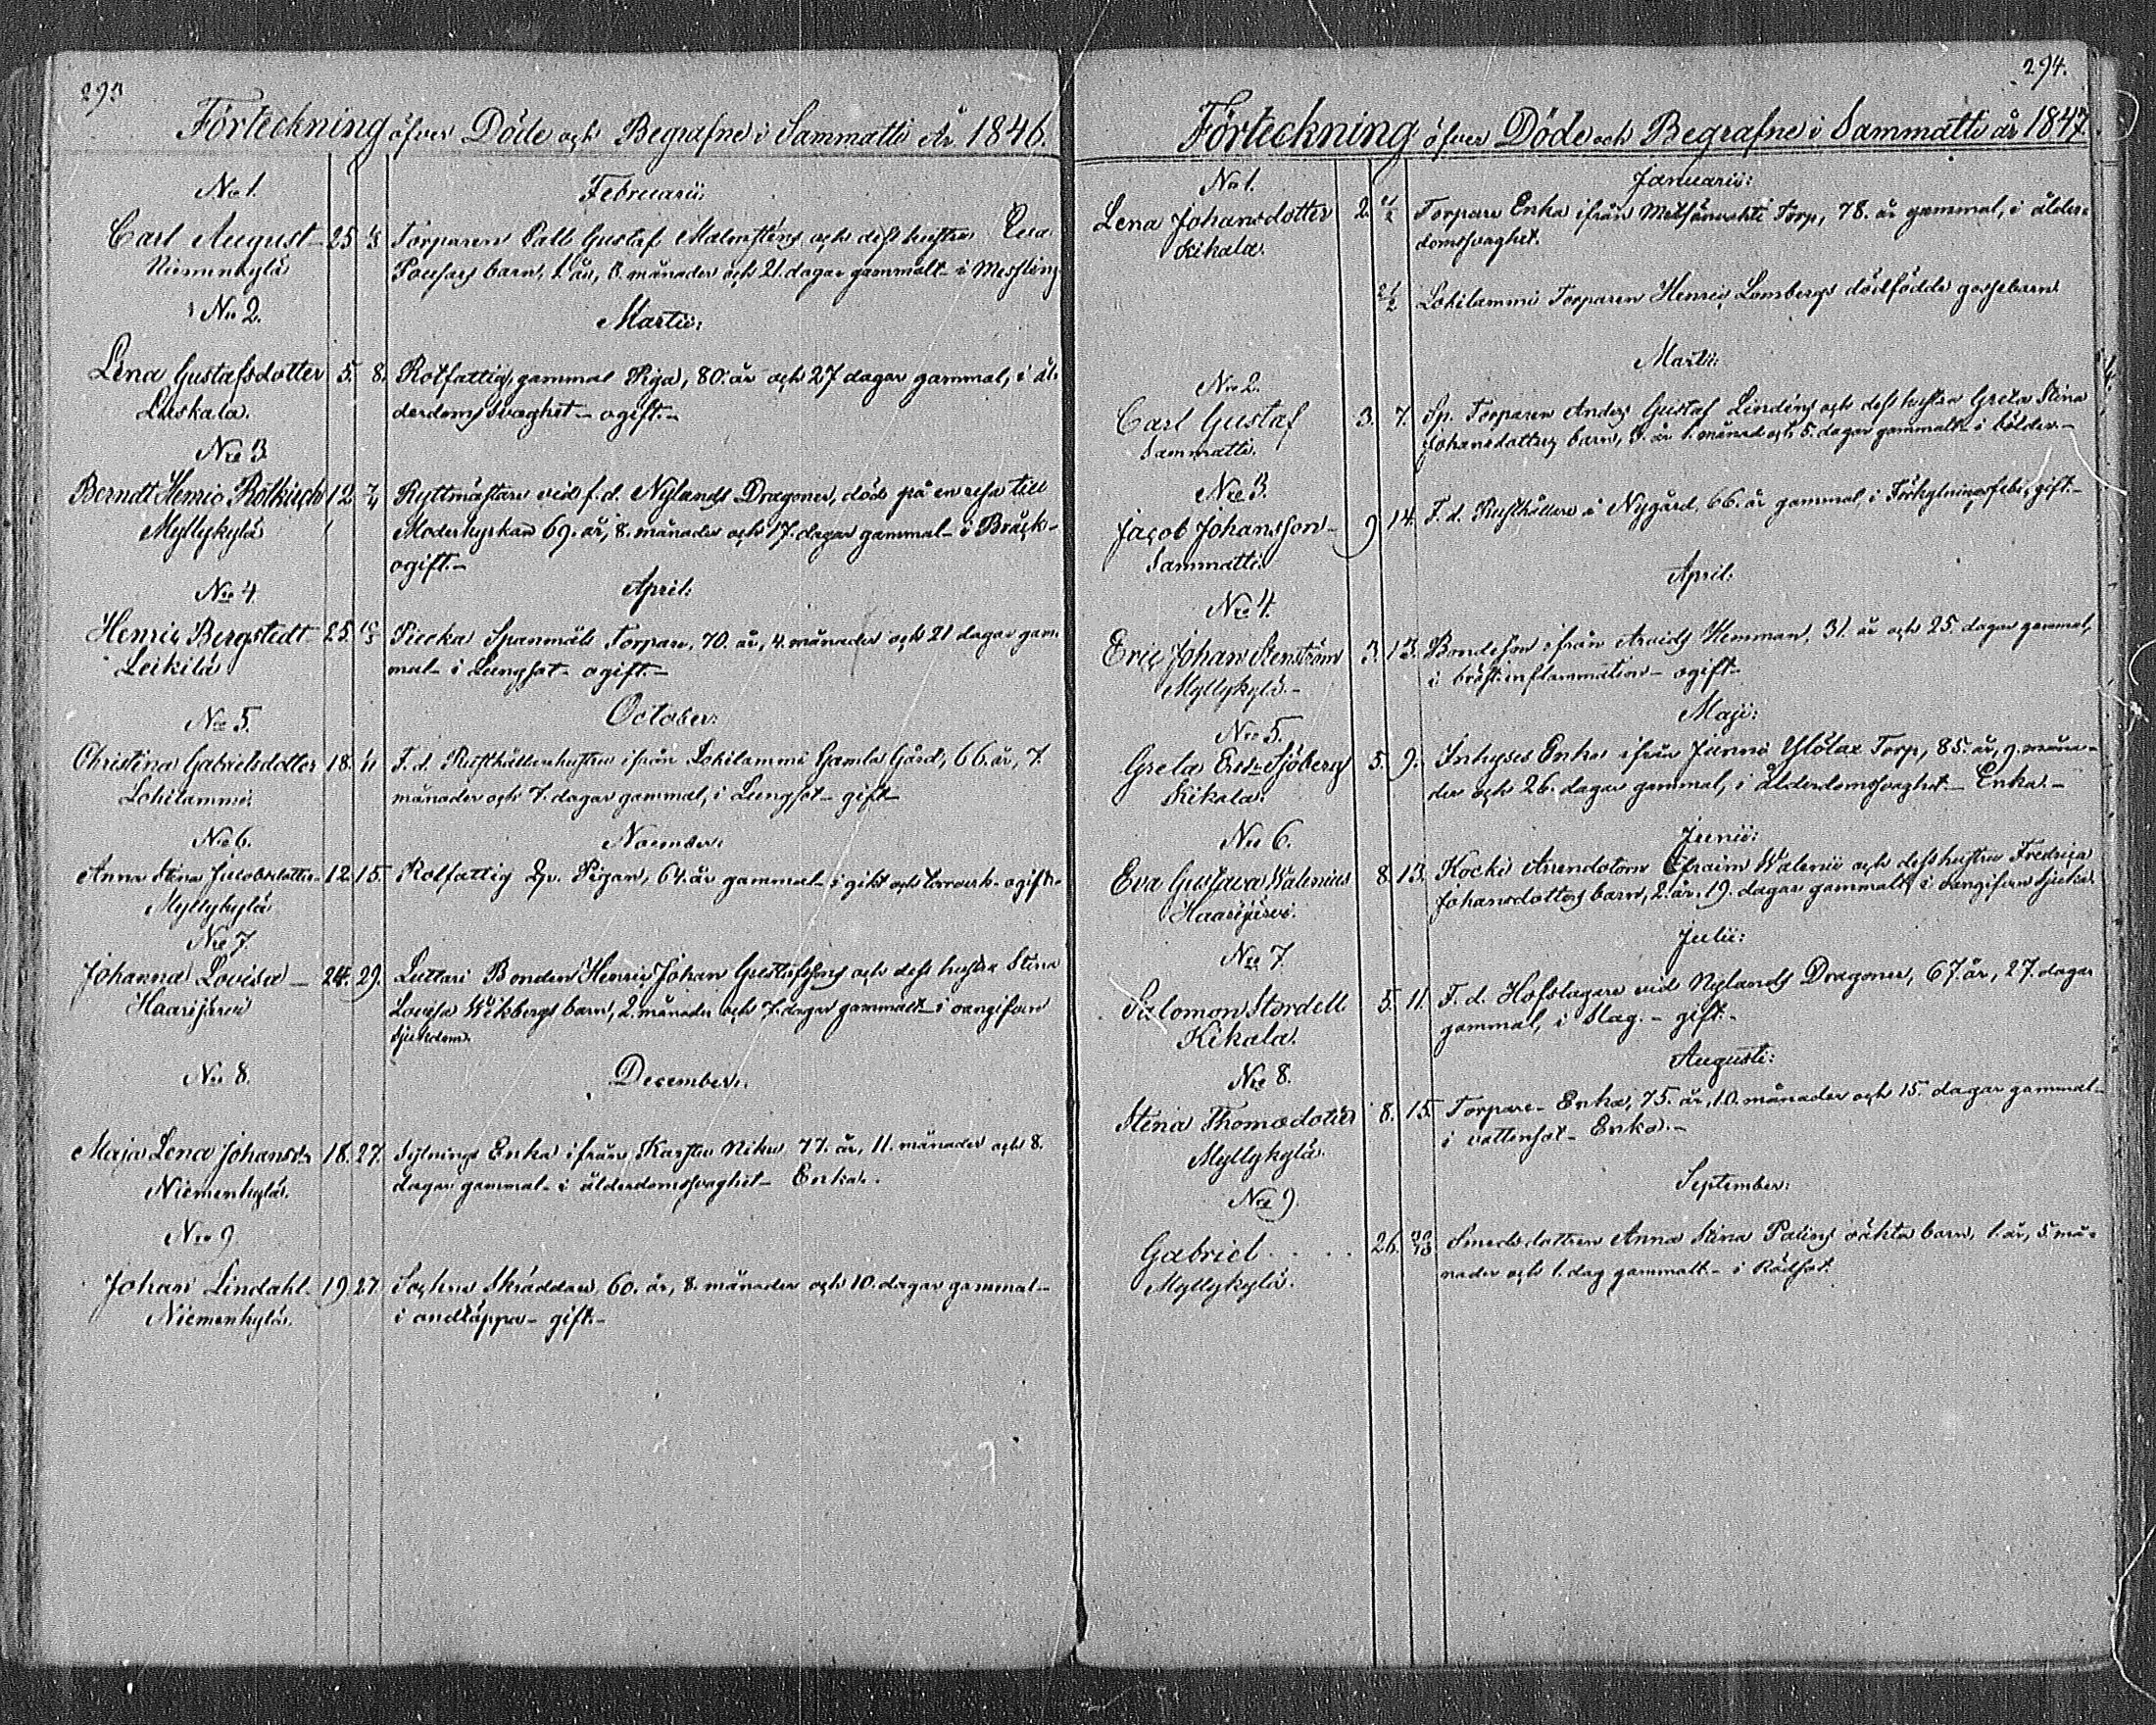 293
Förteckning öfver Döde och Begrafne i Sammatti År 1846.
No 1. Februarii:
Carl August 25 Torparen Palls Gustaf Malmsténs och dess hustru
Niemenkylä barn, 1. år, 8. månader och 21. dagar gammalt - i Messling
No 2. Martii:
Lena Gustafsdotter 5. 8. Rotfattig, gammal Piga, 80. år och 27 dagar gammal, i ål-
Luskala. derdoms svaghet - ogift. -
No 3
Berndt Henric Rotkirch 12 7/4 Ryttmästare vid f.d. Nylands Dragoner, död på en resa till
Myllykylä Moderkyrkan 69. år, 8. månader och 17. dagar gammal - i Bråck -
ogift. -
No 4. April:
Henric Bergstedt 25. Torpare, 70. år, 4. månader och 21 dagar gam-
Leikilä mal - i Lungsot - ogift. -
No 5. October:
Christina Gabrielsdotter 18. F. d. Rusthållar hustru ifrån Lohilammi Gamla Gård, 66. år, 7.
Lohilammi månader och 7. dagar gammal, i Lungsot - gift -
No 6. November:
Anna Stina Jacobsdotter 12. 15. Rotfattig Pigan, 64. år gammal - i gikt och torrverk - ogift. -
Myllykylä
No 7.
Johanna Lovisa - 24. 29. Luttari Bonden Henric Johan Gustafssons och dess hustru Stina
Haarijärvi Lovisa Wikbergs barn, 2. månader och 7. dagar gammalt - i oangifven
sjukdom.
No 8. December:
Maja Lena Johansdr 18. 27. Sytnings Enka ifrån 77. år, 11. månader och 8.
Niemenkylä. dagar gammal - i ålderdomssvaghet - Enka.
No 9.
Johan Lindahl - 19 27 Sochne Skräddare, 60. år, 8. månader och 10. dagar gammal -
Niemenkylä. i andtäppa - gift. -
294.
Förteckning öfver Döde och Begrafne i Sammatti år 1847
No 1. Januarii:
Lena Johansdotter 2. Torpare Enka ifrån Torp, 78. år gammal, i ålder-
Kikala. domssvaghet.
Lohilammi Torparen Henric Lombergs dödfödda gossebarn
Martii:
No 2.
Carl Gustaf 3. 7. Sp. Torparen Anders Gustaf Lindéns och dess hustru Greta Stina
Sammatti. Johansdotters barn, år 1. månad och 5. dagar gammalt - i bölder. -
No 3.
Jacob Johansson - 9 14. F. d. Rusthållare å Nygård, 66. år gammal, i Förkylningsfeber, gift -
Sammatti.
April:
No 4.
Eric Johan Stenström 3. 13. Bondeson ifrån Arvids Hemman, 31. år och 25. dagar gammal,
Myllykylä. - i bröst inflammation - ogift -
Maji:
No 5.
Greta Ersdr Sjöberg 5. 9. Inhyses Enka ifrån Torp, 85. år, 9. måna-
Kikala. der och 26. dagar gammal, i ålderdomssvaghet - Enka. -
No 6. Junii:
Eva Gustava Walenius 8. 13. Kocki Arendatorn Efraim Walenii och dess hustru Fredrica
Haarijärvi. Johansdotters barn, 2. år, 19. dagar gammalt, i oangifven
No 7. Julii:
Salomon Stordell 5. 11. F. d. Hofslagare vid Nylands Dragoner, 67. år, 27. dagar
Kikala. gammal, i Slag. - gift. -
No 8. Augusti:
Stina Thomædotter 8. 15. Torpare - Enka, 75. år, 10. månader och 15. dagar gammal -
Myllykylä. i vattensot - Enka. -
No 9. September:
Gabriel . . . . 26. Smedsdottren Anna Stina Palins oäkta barn, 1. år, 5. må-
Myllykylä. nader och 1. dag gammalt - i Rödsot